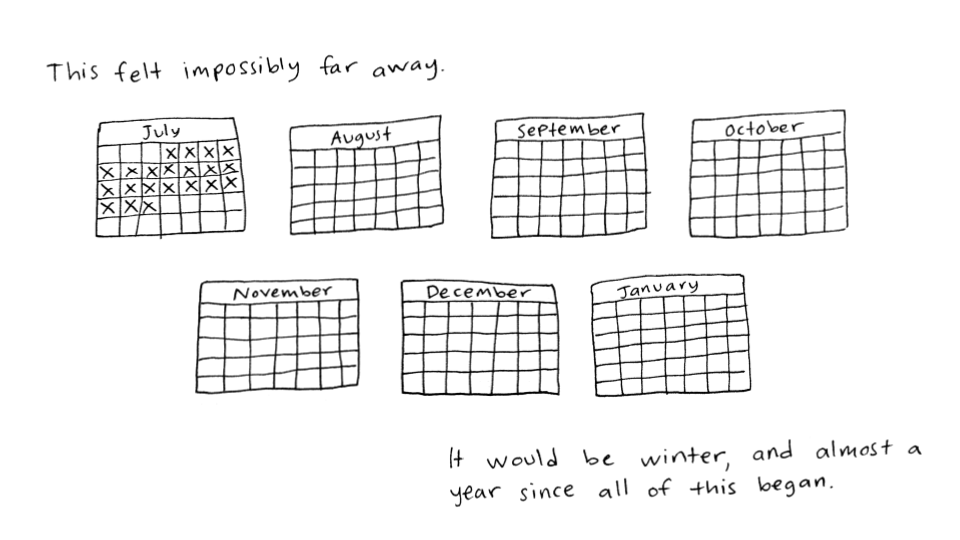 This felt impossibly far away.
July
August
September
October
X X X X
X X X X X X X
X X X X X X X
X X X
November
December
January
It would be winter, and almost a
year since all of this began.